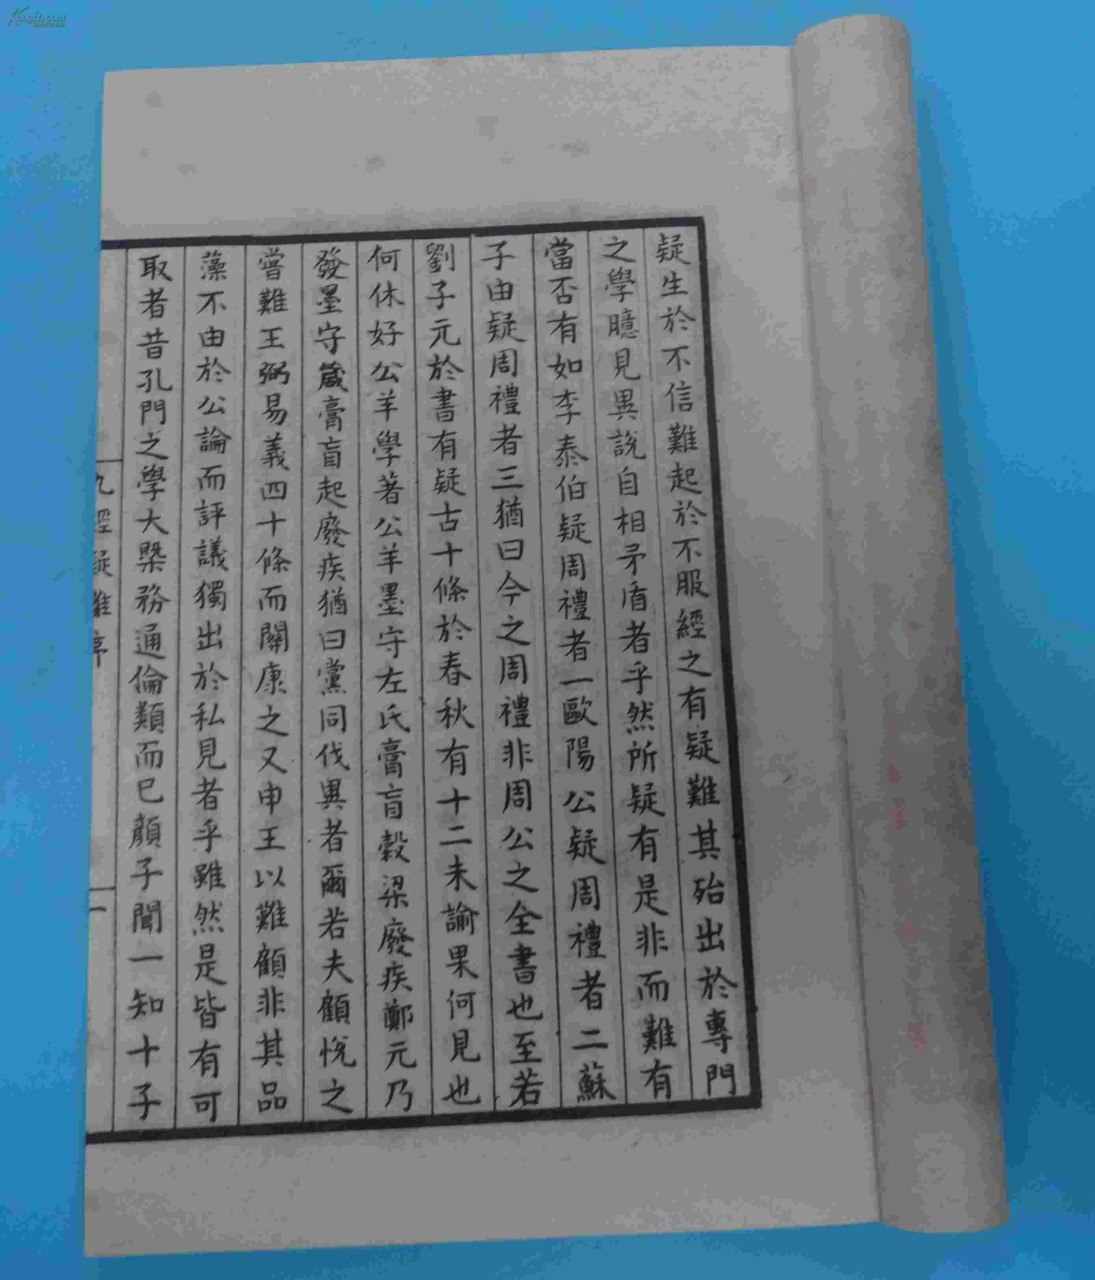 疑生於不信難起於不服經之有疑難其殆出於專門
之學臆見異說自相矛盾者乎然所疑有是非而難有
當否有如李泰伯疑周禮者一歐陽公疑周禮者二蘇
子由疑周禮者三猶曰今之周禮非周公之全書也至若
劉子元於書有疑古十條於春秋有十二未諭果何見也
何休好公羊學著公羊墨守左氏膏盲穀梁廢疾鄭元乃
發墨守箴膏盲起廢疾猶曰黨同伐異者爾若夫顧悅之
嘗難王弼易義四十條而關康之又申王以難顧非其品
藻不由於公論而評議獨出於私見者乎雖然是皆有可
取者昔孔門之學大槩務通倫類而已顏子聞一知十子
九經疑難序
一